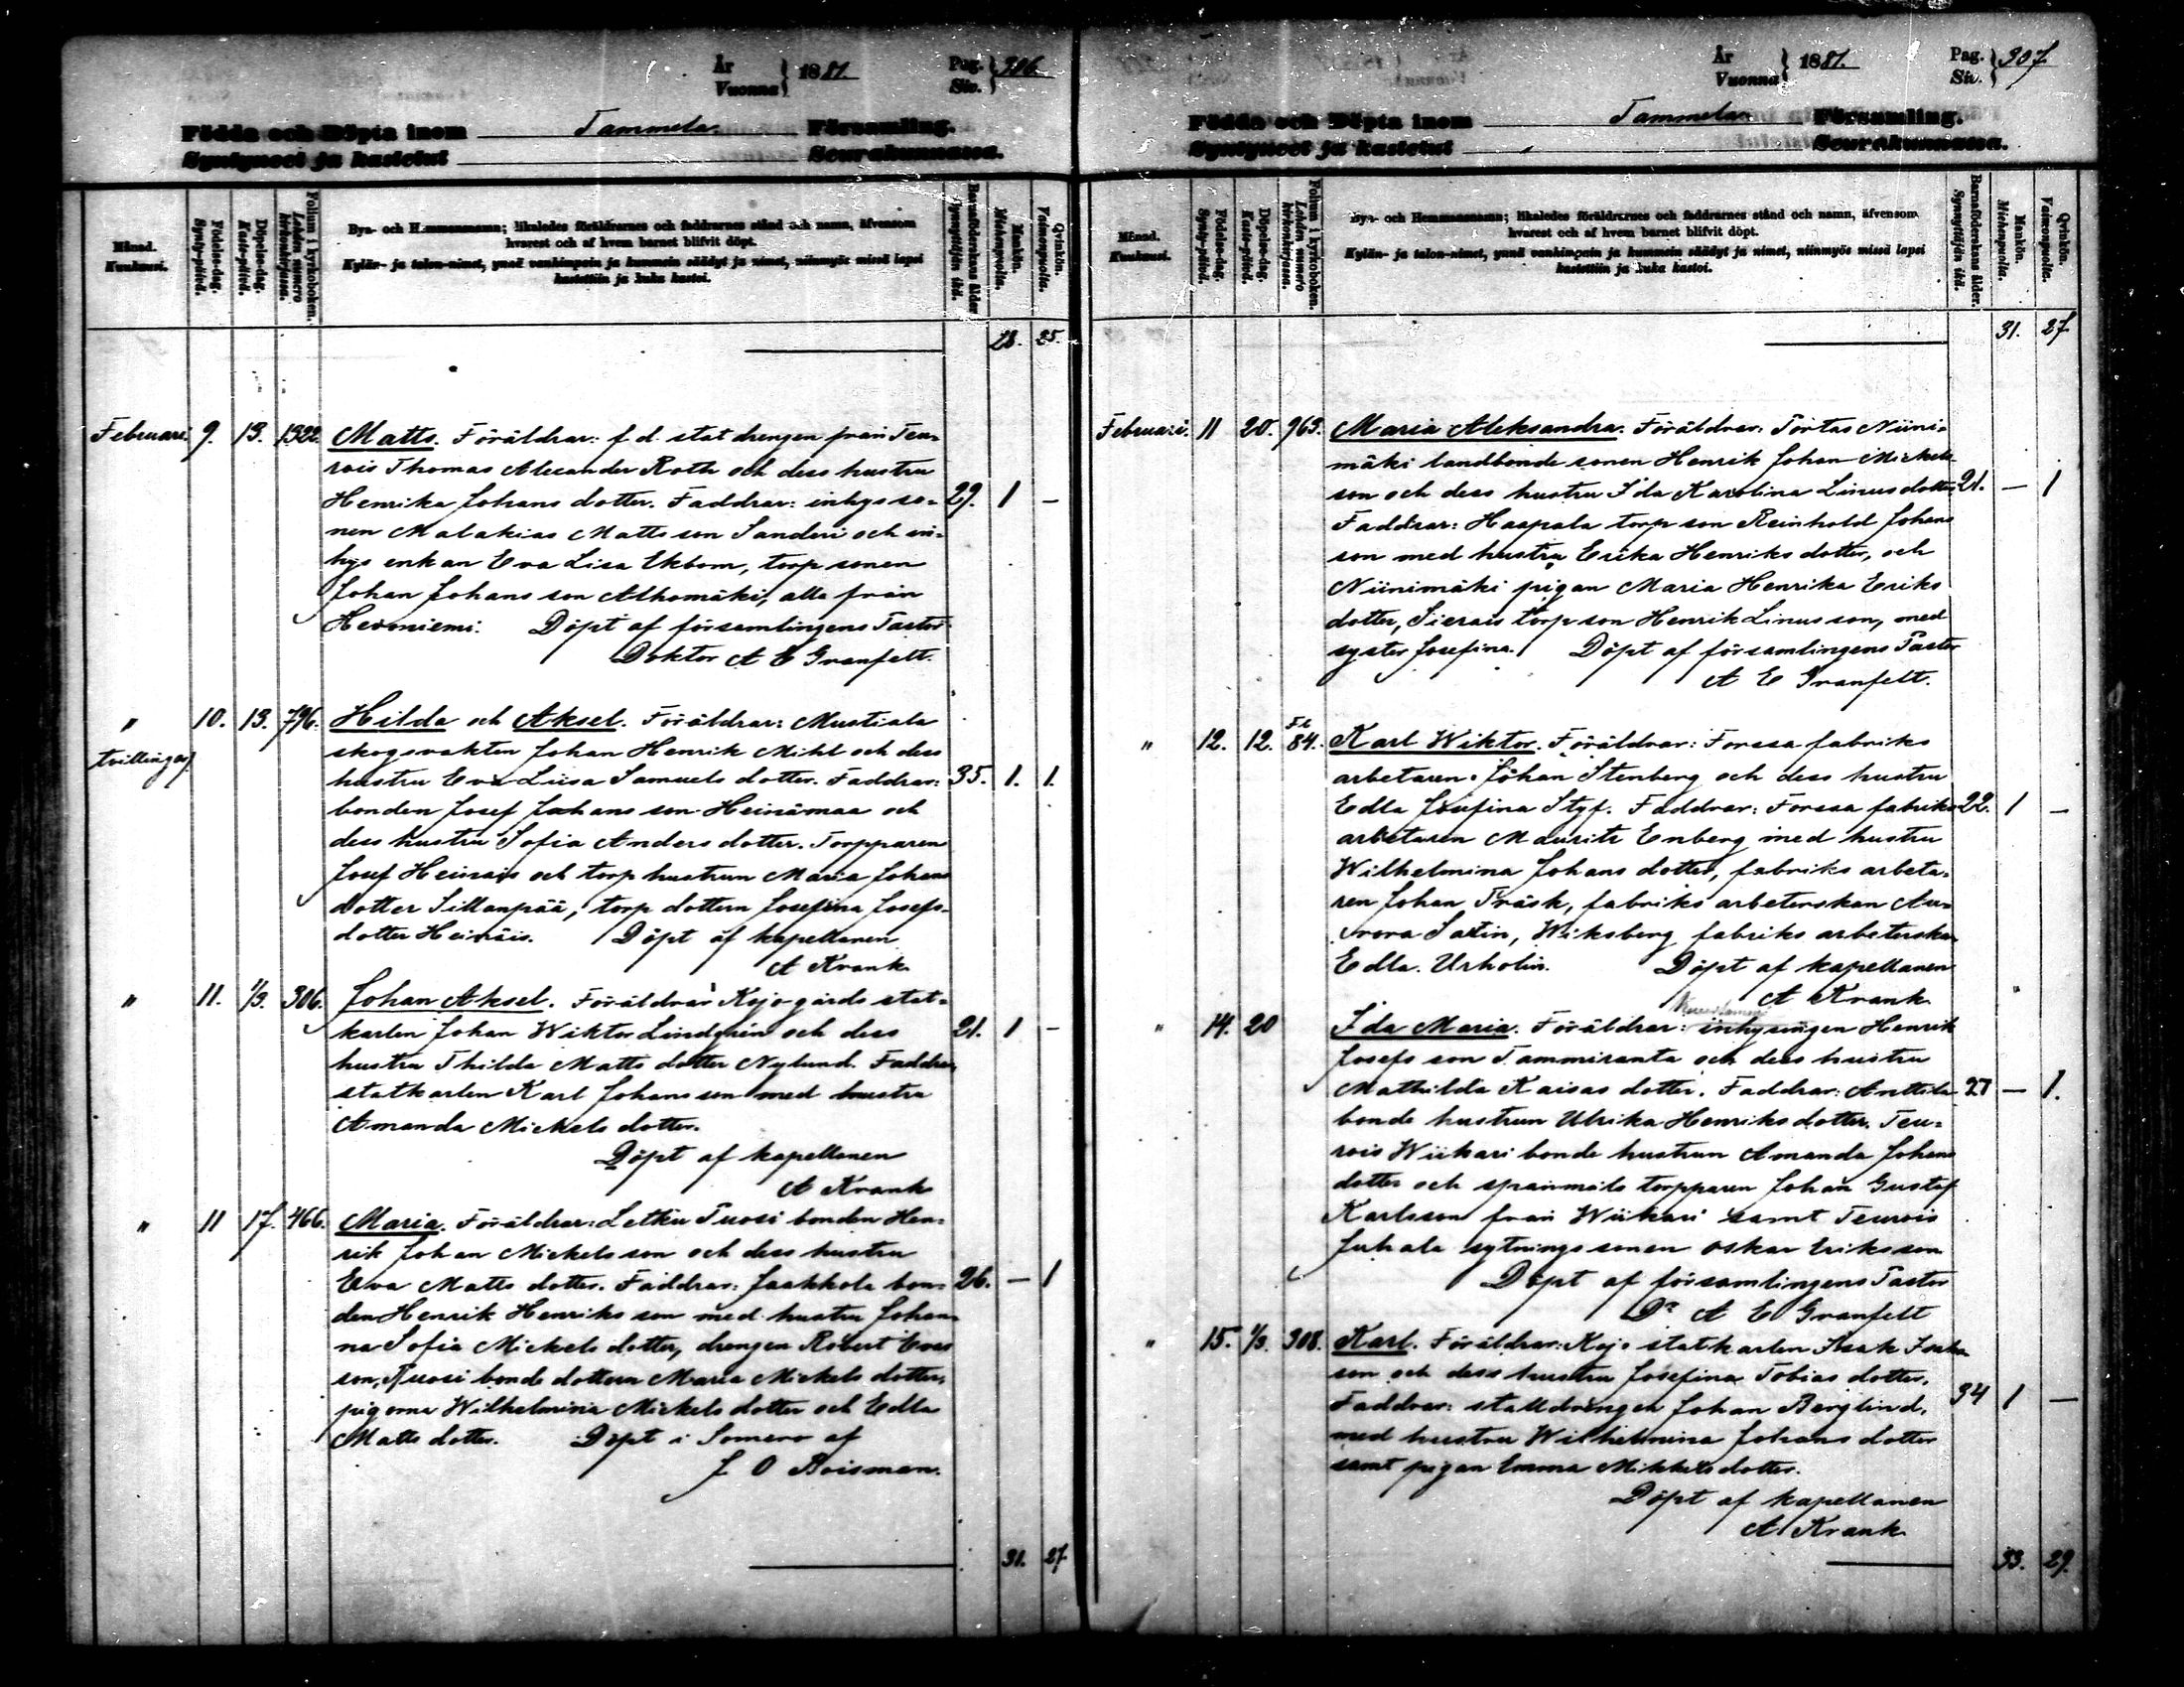 År
Vuonna } 1881.
Pag.
Siv. } 306
Födda och Döpta inom Tammela Församling.
Syntyneet ja kastetut Seurakunnassa.
Månad.
Kuukausi.
Födelse-dag.
Synty-päivä.
Döpelse-dag.
Kaste-päivä.
Folium i kyrkoboken.
Lehden numero kirkonkirjassa.
Bya- och Hemmansnamn; likaledes föräldrarnes och faddrarnes stånd och namn, äfvensom
hvarest och af hvem barnet blifvit döpt.
Kylän- ja talon-nimet, ynnä vanhimpain ja kummein säädyt ja nimet, niinmyös missä lapsi
kastettiin ja kuka kastoi.
Barnaföderskans ålder.
Synnyttäjän ikä.
Mankön.
Miehenpuolta.
Qvinkön.
Vaimonpuolta.
28. 25.
Februari. 9. 13. 1322. Matts. Föräldrar: f d statdrengen från Teu-
rois Thomas Alexander Roth och dess hustru
Henrika Johans dotter. Faddrar: inhys so- 29. 1 –
nen Malakias Matts son Sanderi och in-
hys enkan Eva Lisa Ekbom, torp sonen
Johan Johans son Alhomäki, alla från
Hevoniemi. Döpt af församlingens Pastor
Doktor A E Granfelt.
" 10. 13. 796. Hilda och Aksel. Föräldrar: Mustiala
tvillingar. skogsvakten Johan Henrik Mihl och dess
hustru Eva Liisa Samuels dotter. Faddrar: 35. 1. 1.
bonden Josef Johans son Heinämaa och
dess hustru Sofia Anders dotter. Torpparen
Josef Heinäis och torp hustrun Maria Johans
dotter Sillanpää, torp dottern Josefina Josefs-
dotter Heinäis. Döpt af kapellanen
A Krank
" 11. 1/3. 306. Johan Aksel. Föräldrar Kojogårds stat-
karlen Johan Wiktor Lindqvin och dess 21. 1 –
hustru Thilda Matts dotter Nylund. Faddrar
statkarlen Karl Johans son med hustru
Amanda Mickels dotter.
Döpt af kapellanen
A Krank
" 11 17. 466. Maria. Föräldrar: Letku Tuosi bonden Hen-
rik Johan Mickels son och dess hustru
Eva Matts dotter. Faddrar: Jaakkola bon- 26. – 1
den Henrik Henriks son med hustru Johan-
na Sofia Mickels dotter, drengen Robert Evas
son, Tuosi bonde dottern Maria Mickels dotter,
pigorna Wilhelmina Mickels dotter och Edla
Matts dotter. Döpt i Somero af
J O Boisman.
31. 27
År
Vuonna } 1881.
Pag.
Siv. } 307
Födda och Döpta inom Tammela Församling.
Syntyneet ja kastetut Seurakunnassa.
Månad.
Kuukausi.
Födelse-dag.
Synty-päivä.
Döpelse-dag.
Kaste-päivä.
Folium i kyrkoboken.
Lehden numero kirkonkirjassa.
Bya- och Hemmansnamn; likaledes föräldrarnes och faddrarnes stånd och namn, äfvensom
hvarest och af hvem barnet blifvit döpt.
Kylän- ja talon-nimet, ynnä vanhimpain ja kummein säädyt ja nimet, niinmyös missä lapsi
kastettiin ja kuka kastoi.
Barnaföderskans ålder.
Synnyttäjän ikä.
Mankön.
Miehenpuolta.
Qvinkön.
Vaimonpuolta.
31. 27
Februari. 11 20. 963. Maria Aleksandra. Föräldrar: Törtas Niini-
mäki landbonde sonen Henrik Johan Mickels-
son och dess hustru Ida Karolina Linus dotter 21. – 1
Faddrar: Haapala torp son Reinhold Johans
son med hustru Erika Henriks dotter, och
Niinimäki pigan Maria Henrika Eriks
dotter, Sierais torp son Henrik Linus son, med
syster Josefina. Döpt af församlingens Pastor
A E Granfelt.
" 12. 12. Fl 84. Karl Wiktor. Föräldrar: Forssa fabriks
arbetaren Johan Stenberg och dess hustru
Edla Josefina Styf. Faddrar: Forssa fabriks 22. 1 –
arbetaren Mauritz Enberg med hustru
Wilhelmina Johans dotter, fabriks arbeta-
ren Johan Träsk, fabriks arbeterskan Au-
rora Satin, Wiksberg fabriks arbeterskan
Edla Urholin. Döpt af kapellanen
A Krank
" 14. 20 Ida Maria. Föräldrar: inhysingen Henrik
Josefs son Tammiranta och dess hustru
Mathilda Kaisas dotter. Faddrar: Anttila 27 – 1.
bonde hustrun Ulrika Henriks dotter. Teu-
rois Wiikari bonde hustrun Amanda Johans
dotter och spanmåls torpparen Johan Gustaf
Karlsson från Wiikari samt Teurois
Juhala sytnings sonen Oskar Eriksson
Döpt af församlingens Pastor
Dr A E Granfelt
" 15. 1/3. 308. Karl. Föräldrar: Kojo statkarlen Isak Isaks
son och dess hustru Josefina Tobias dotter.
Faddrar: stalldrängen Johan Berglind, 34 1 –
med hustru Wilhelmina Johans dotter
samt pigan Emma Mikkels dotter.
Döpt af kapellanen
A Krank
33. 29.